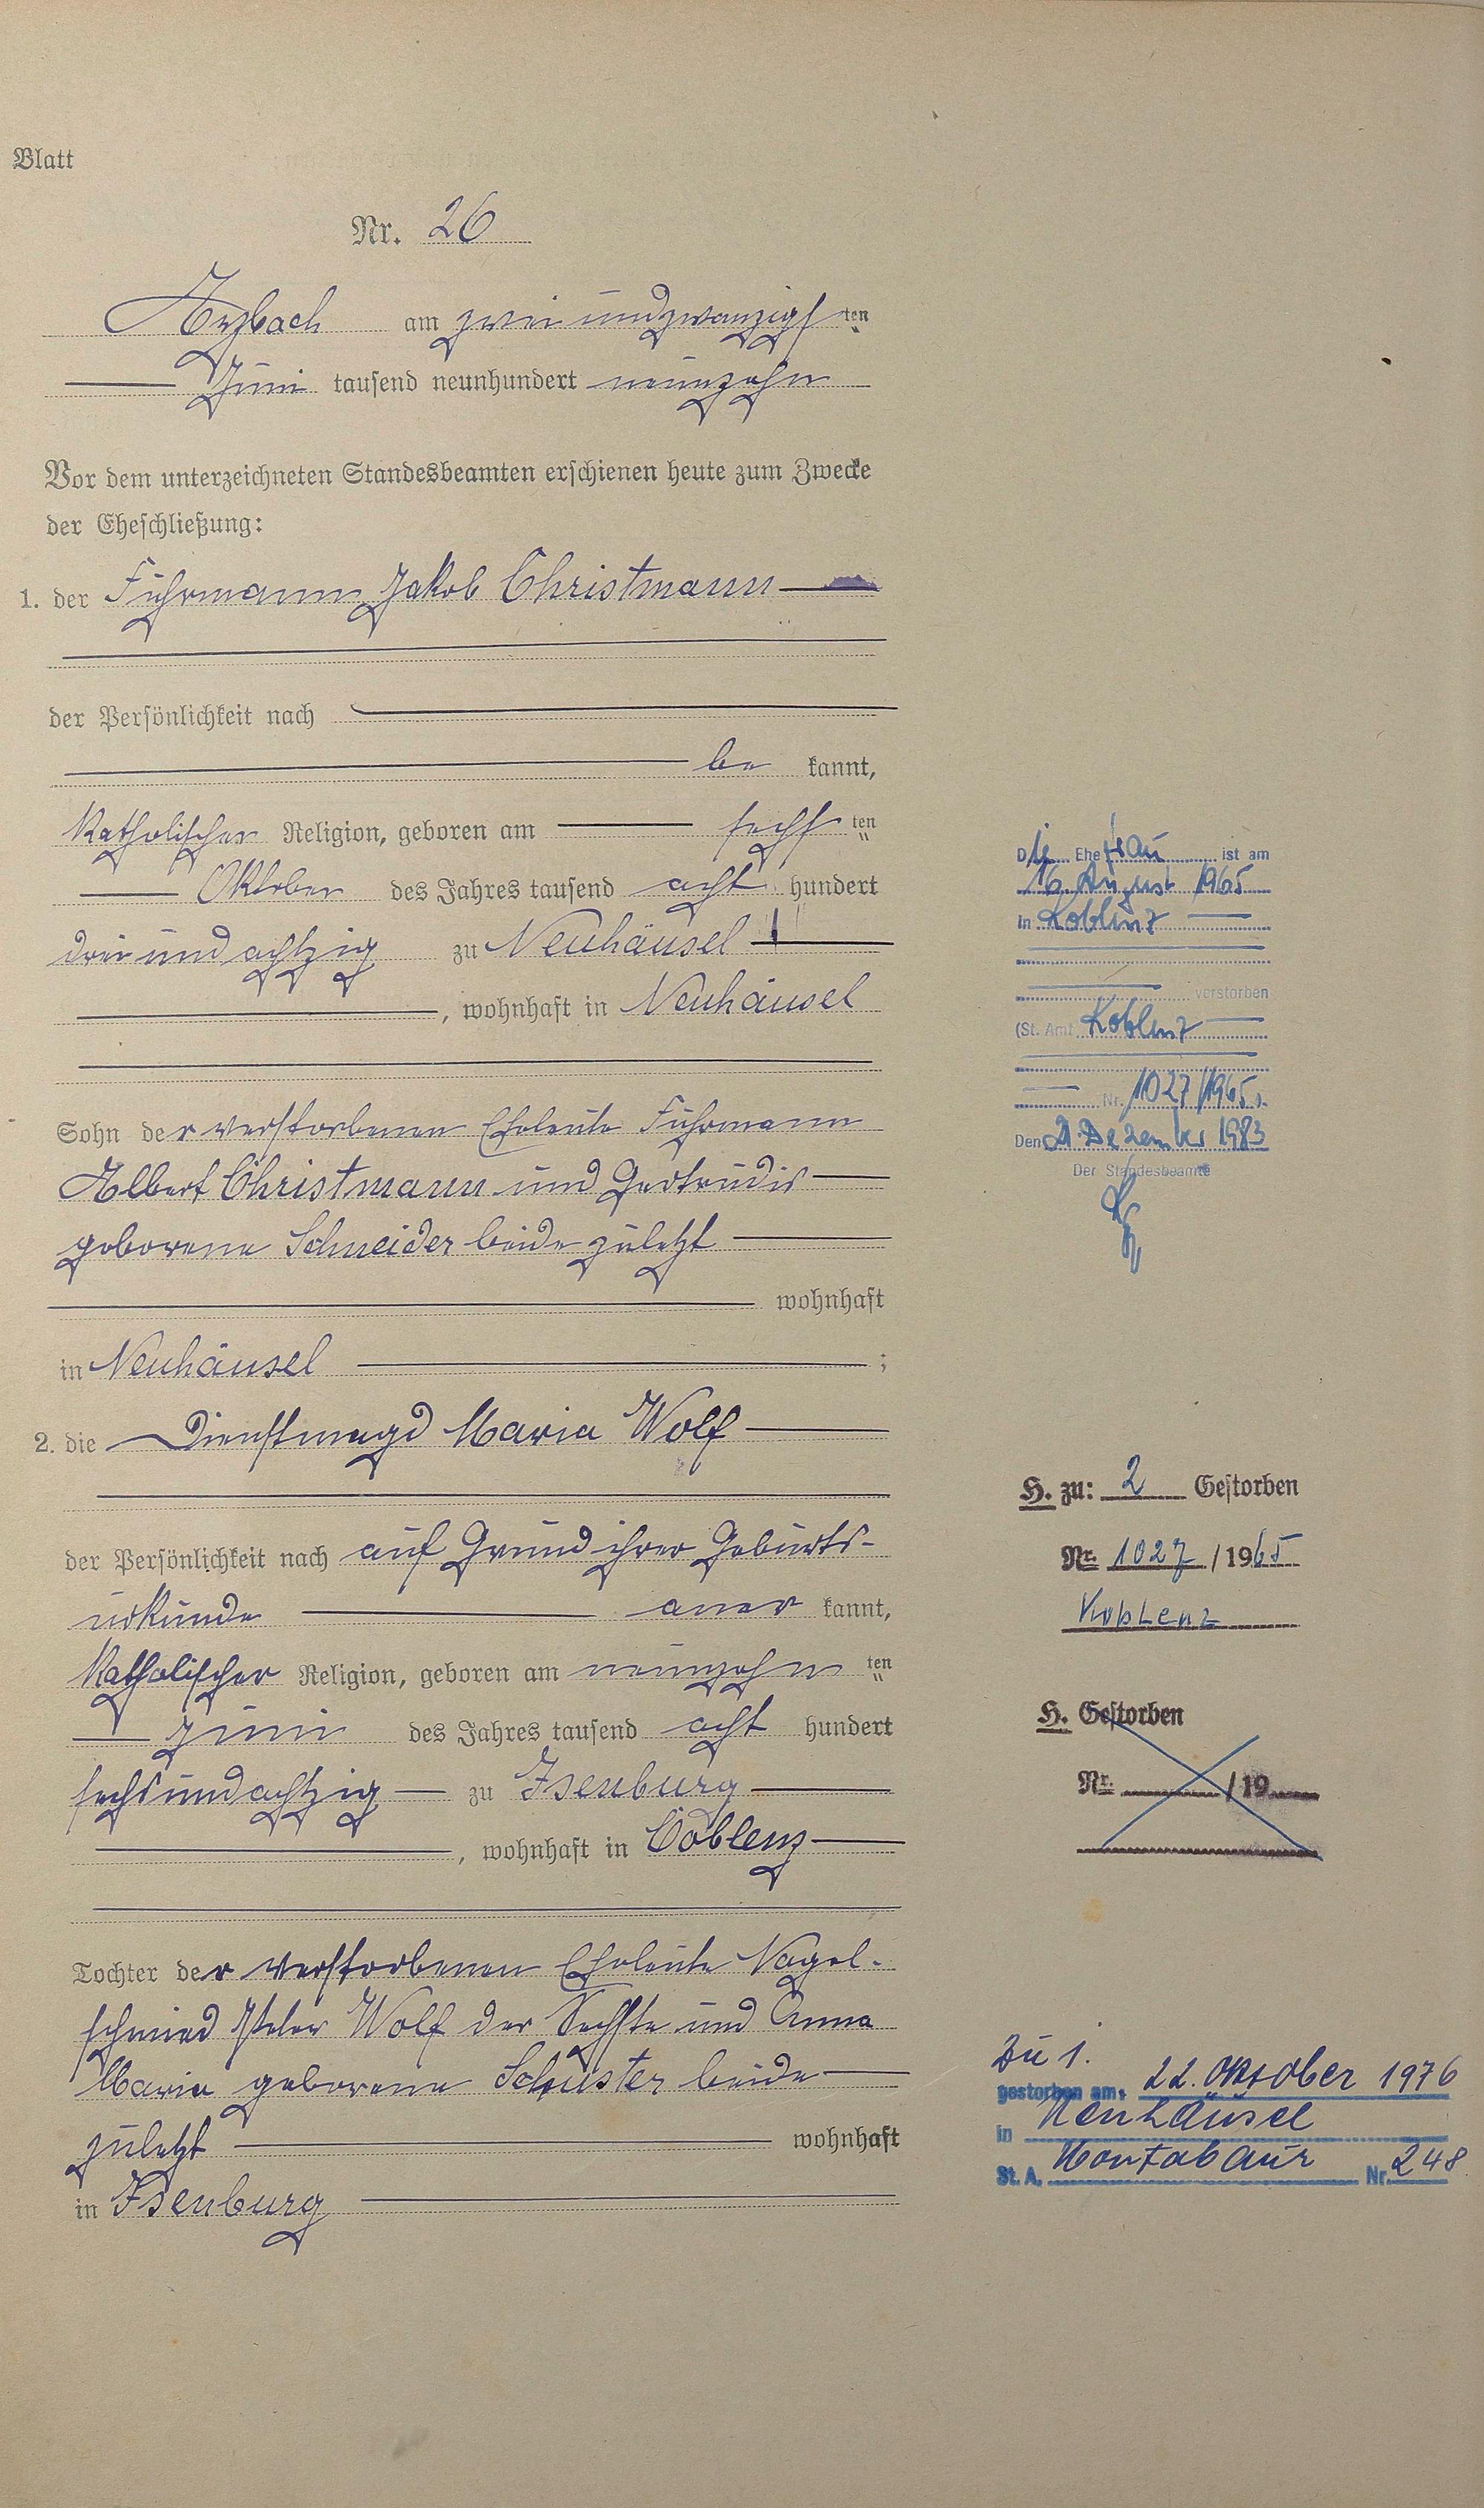 Blatt
Nr. 26
Arzbach am zwei und zwanzigsten
Juni tausend neunhundert neunzehn
Vor dem unterzeichneten Standesbeamten erschienen heute zum Zwecke
der Eheschließung:
1. der Fuhrmann Jakob Christmann
der Persönlichkeit nach
be kannt,
katholischer Religion, geboren am sechsten
Oktober des Jahres tausend acht hundert
drei und achtzig zu Neuhäusel
, wohnhaft in Neuhäusel
Sohn der verstorbenen Eheleute Fuhrmann
Albert Christmann und Gertrudis
geborene Schneider beide zuletzt
wohnhaft
in Neuhäusel ;
2. die Dienstmagd Maria Wolf
der Persönlichkeit nach auf Grund ihrer Geburts-
urkunde aner kannt,
katholischer Religion, geboren am neunzehnten
Juni des Jahres tausend acht hundert
sechsundachtzig zu Isenburg
, wohnhaft in Coblenz
Tochter der verstorbenen Eheleute Nagel-
schmied Peter Wolf der Sechste und Anna
Maria geborene Schuster beide
zuletzt wohnhaft
in Isenburg
Die Ehefrau ist am
16. August 1965
in Koblenz
verstorben
(St. Amt Koblenz
Nr. 1027/1965).
Den 21. Dezember 1983
Der Standesbeamte
H. zu: 2 Gestorben
Nr. 1027/1965
Koblenz
H. Gestorben
Nr. /19
Zu 1.
gestorben am: 22. Oktober 1976
in Neuhäusel
St. A. Montabaur Nr. 248